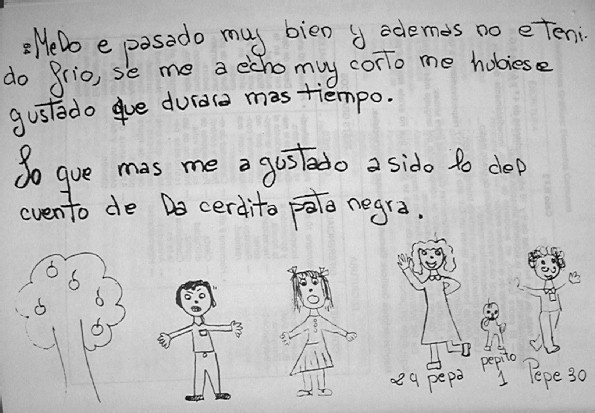 MeDo e pasado muy bien y ademas no e teni-
do frio, se me a echo muy corto me hubiese
gustado que durara mas tiempo.
Lo que mas me a gustado a sido lo del
cuento de la cerdita pata negra.
pepito
29 pepa 1 Pepe 30